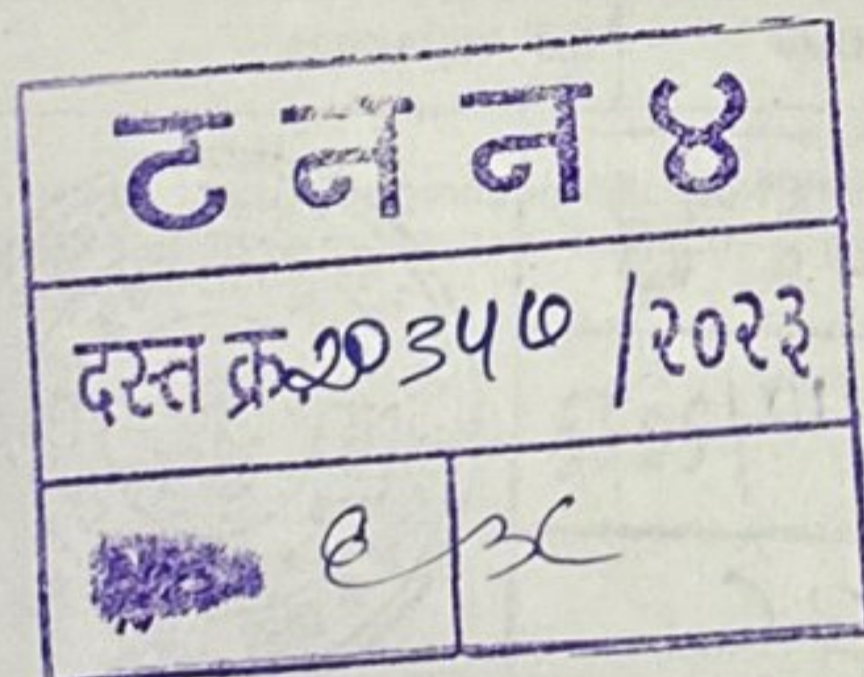 ट न न ४
दस्त क्र.२०३५७ /२०२३